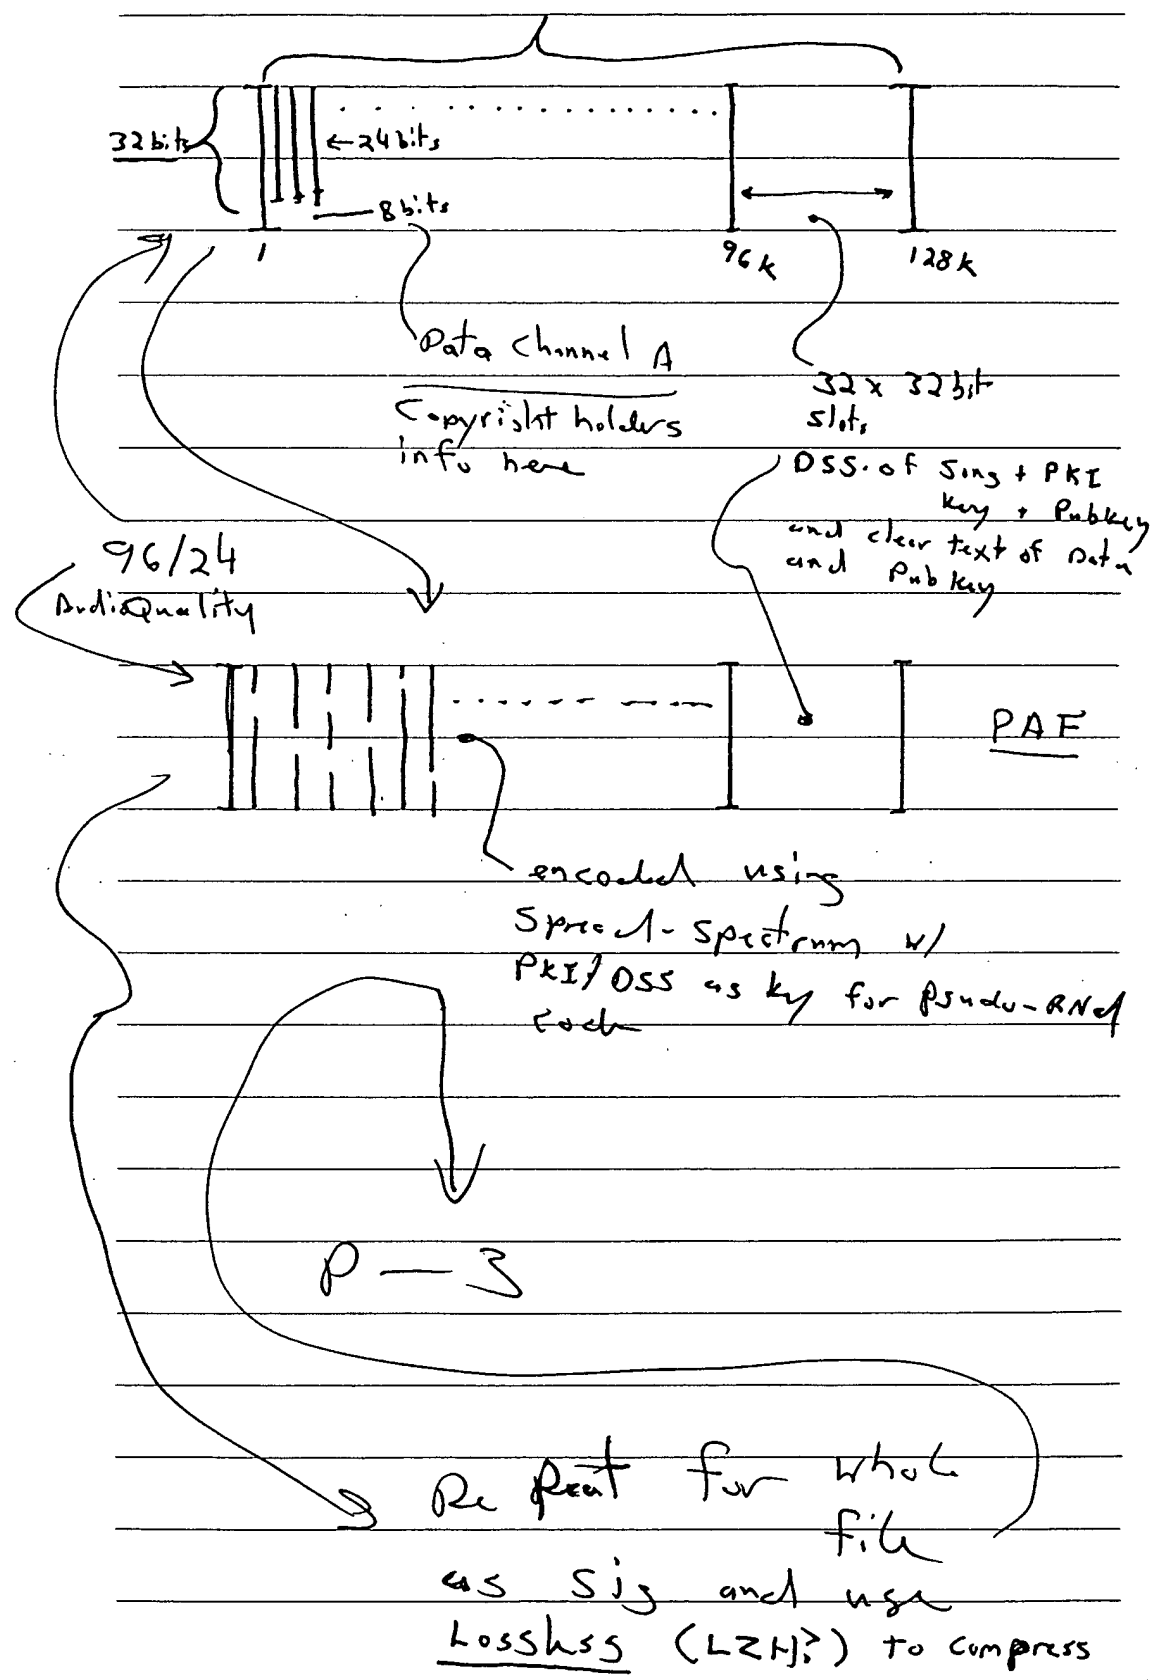 32 bits
←24 bits
8 bits
1
96k
128k
Data Channel A
Copyright holders
info here
32 x 32 bit
slots
DSS of Song + PKI
Key + Pubkey
and clear text of Data
and Pubkey
96/24
AudioQuality
PAF
encoded using
Spread-Spectrum w/
PKI/DSS as key for Psudo-RNd
code
P—3
Repeat for whole
file
as Sig and use
Lossless (LZH?) to compress